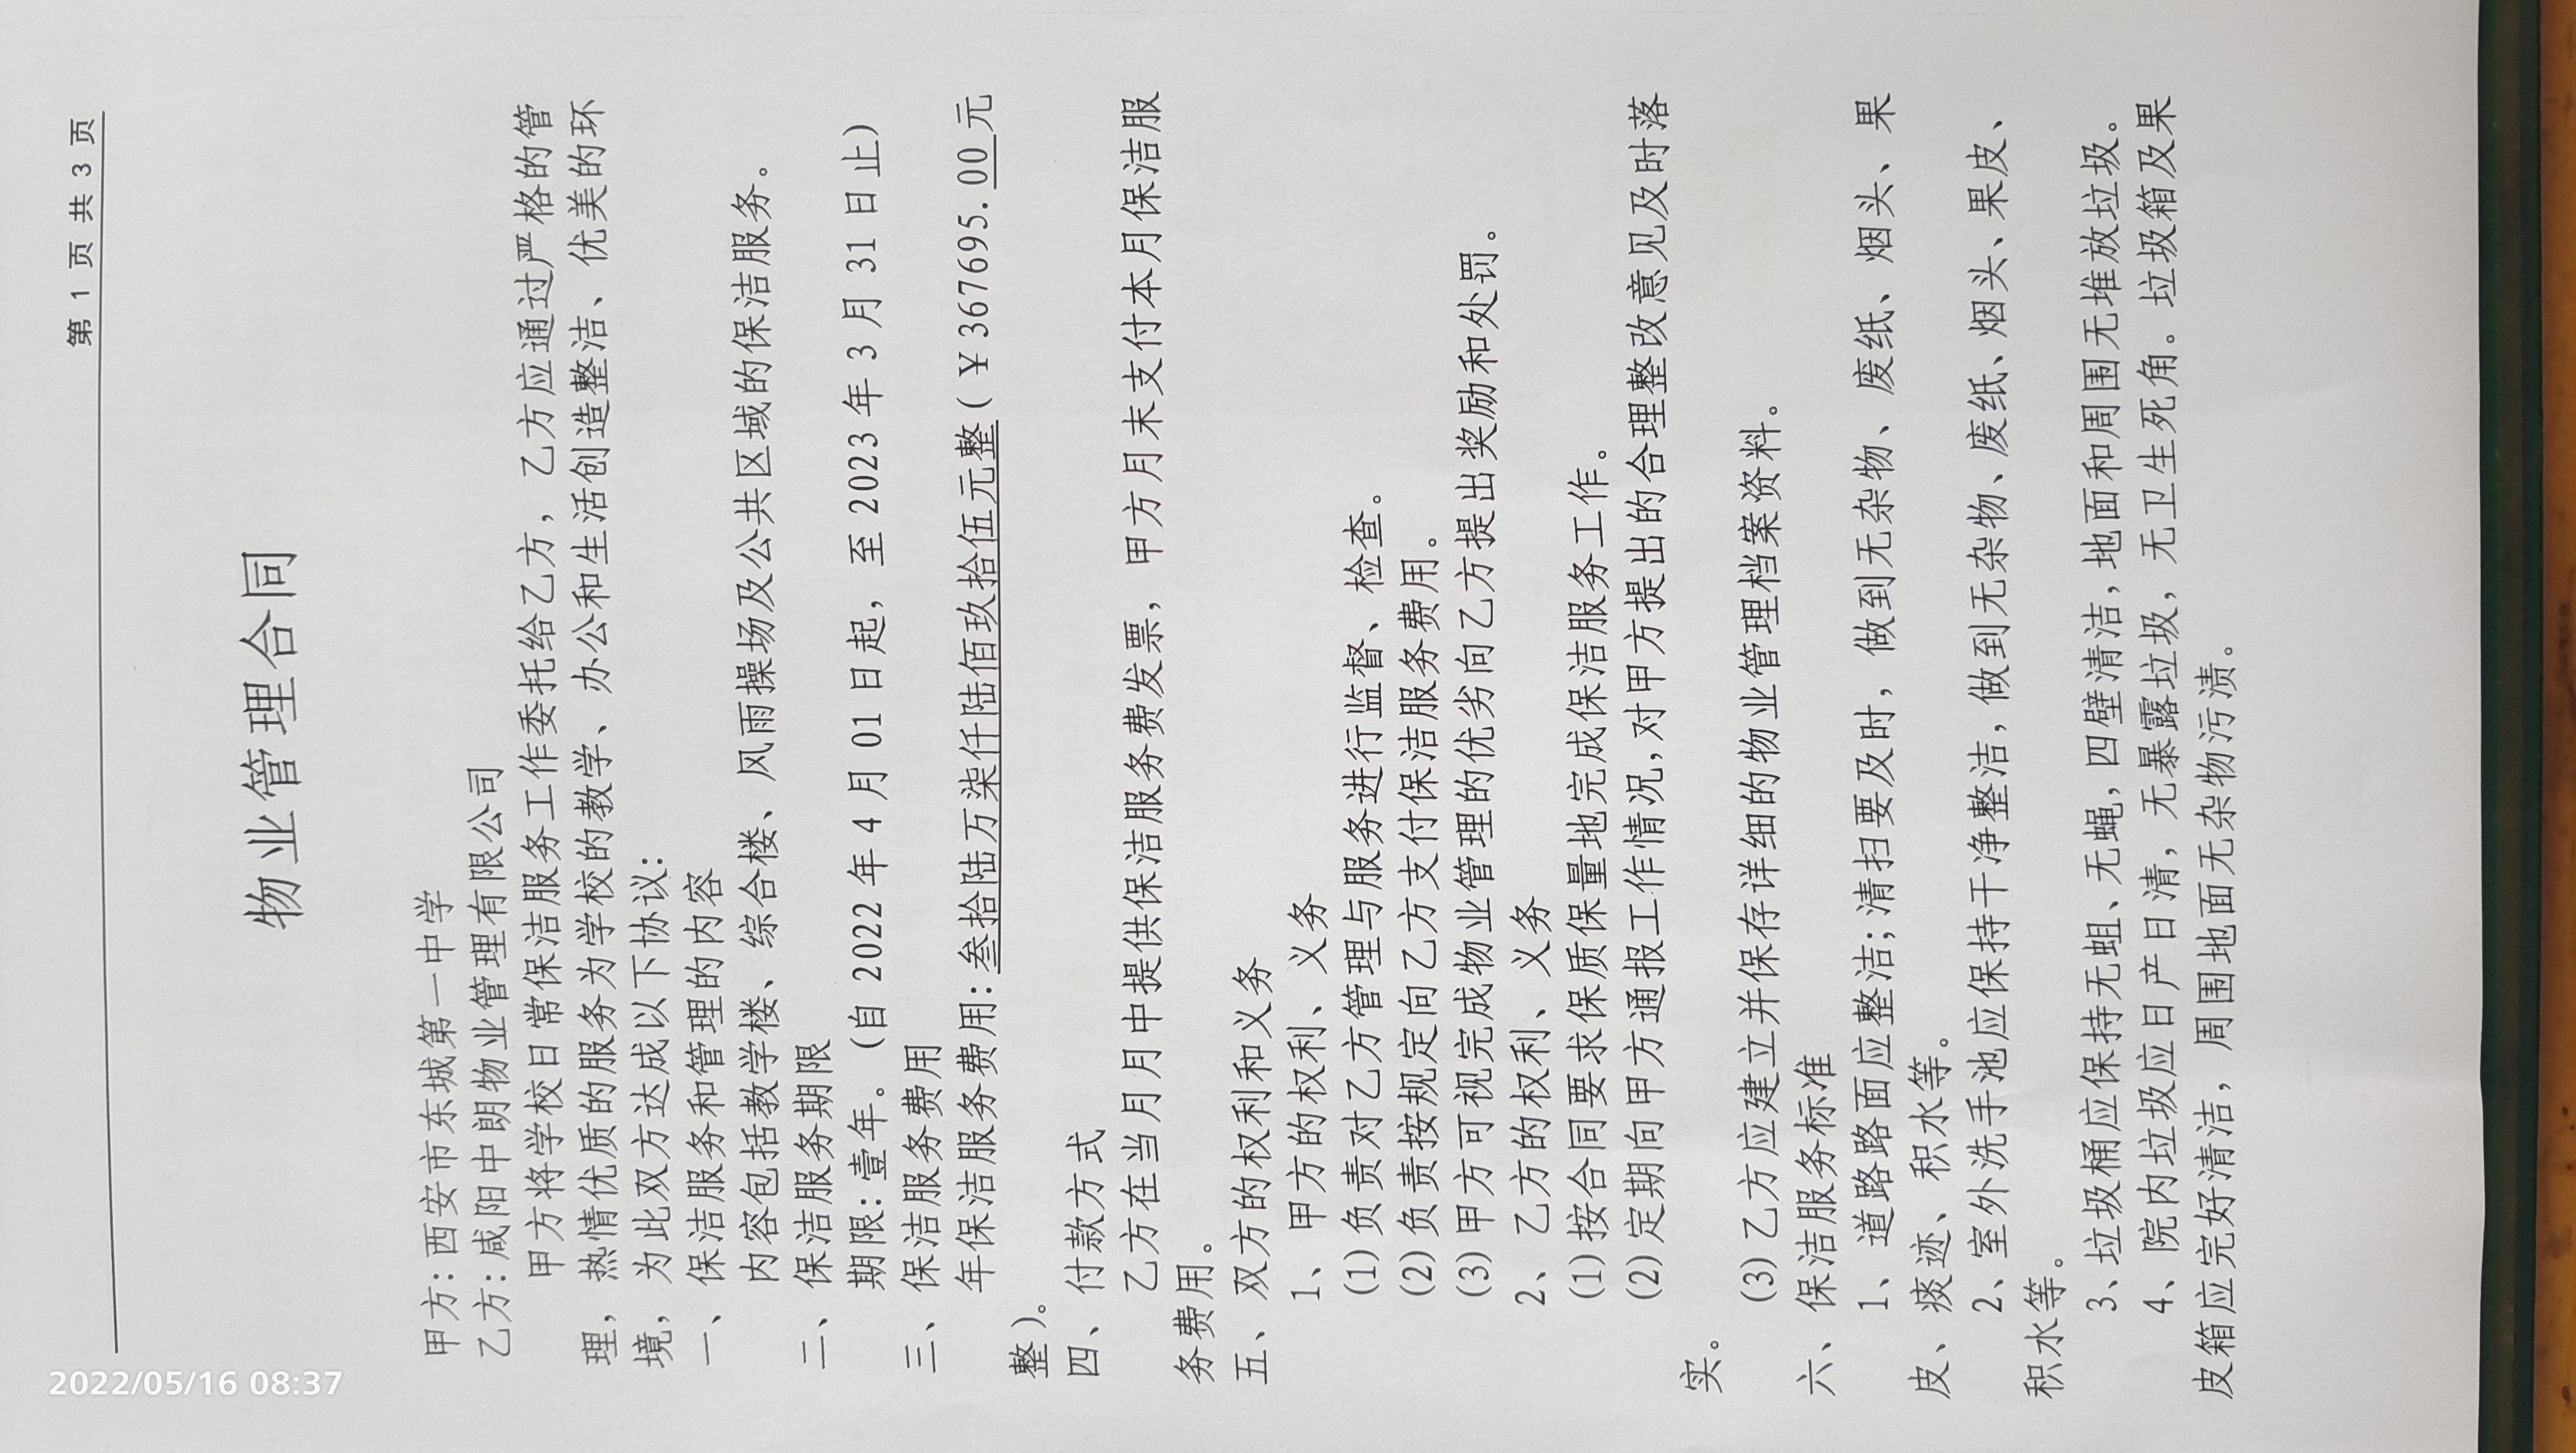 第 1 页 共 3 页
物业管理合同
甲方:西安市东城第一中学
乙方:咸阳中朗物业管理有限公司
甲方将学校日常保洁服务工作委托给乙方,乙方应通过严格的管
理,热情优质的服务为学校的教学、办公和生活创造整洁、优美的环
境,为此双方达成以下协议:
一、保洁服务和管理的内容
内容包括教学楼、综合楼、风雨操场及公共区域的保洁服务。
二、保洁服务期限
期限:壹年。(自 2022 年 4 月 01 日起,至 2023 年 3 月 31 日止)
三、保洁服务费用
年保洁服务费用:叁拾陆万柒仟陆佰玖拾伍元整(¥367695.00元
整)。
四、付款方式
乙方在当月月中提供保洁服务费发票,甲方月末支付本月保洁服
务费用。
五、双方的权利和义务
1、甲方的权利、义务
(1)负责对乙方管理与服务进行监督、检查。
(2)负责按规定向乙方支付保洁服务费用。
(3)甲方可视完成物业管理的优劣向乙方提出奖励和处罚。
2、乙方的权利、义务
(1)按合同要求保质保量地完成保洁服务工作。
(2)定期向甲方通报工作情况,对甲方提出的合理整改意见及时落
实。
(3)乙方应建立并保存详细的物业管理档案资料。
六、保洁服务标准
1、道路路面应整洁;清扫要及时,做到无杂物、废纸、烟头、果
皮、痰迹、积水等。
2、室外洗手池应保持干净整洁,做到无杂物、废纸、烟头、果皮、
积水等。
3、垃圾桶应保持无蛆、无蝇,四壁清洁,地面和周围无堆放垃圾。
4、院内垃圾应日产日清,无暴露垃圾,无卫生死角。垃圾箱及果
皮箱应完好清洁,周围地面无杂物污渍。
2022/05/16 08:37